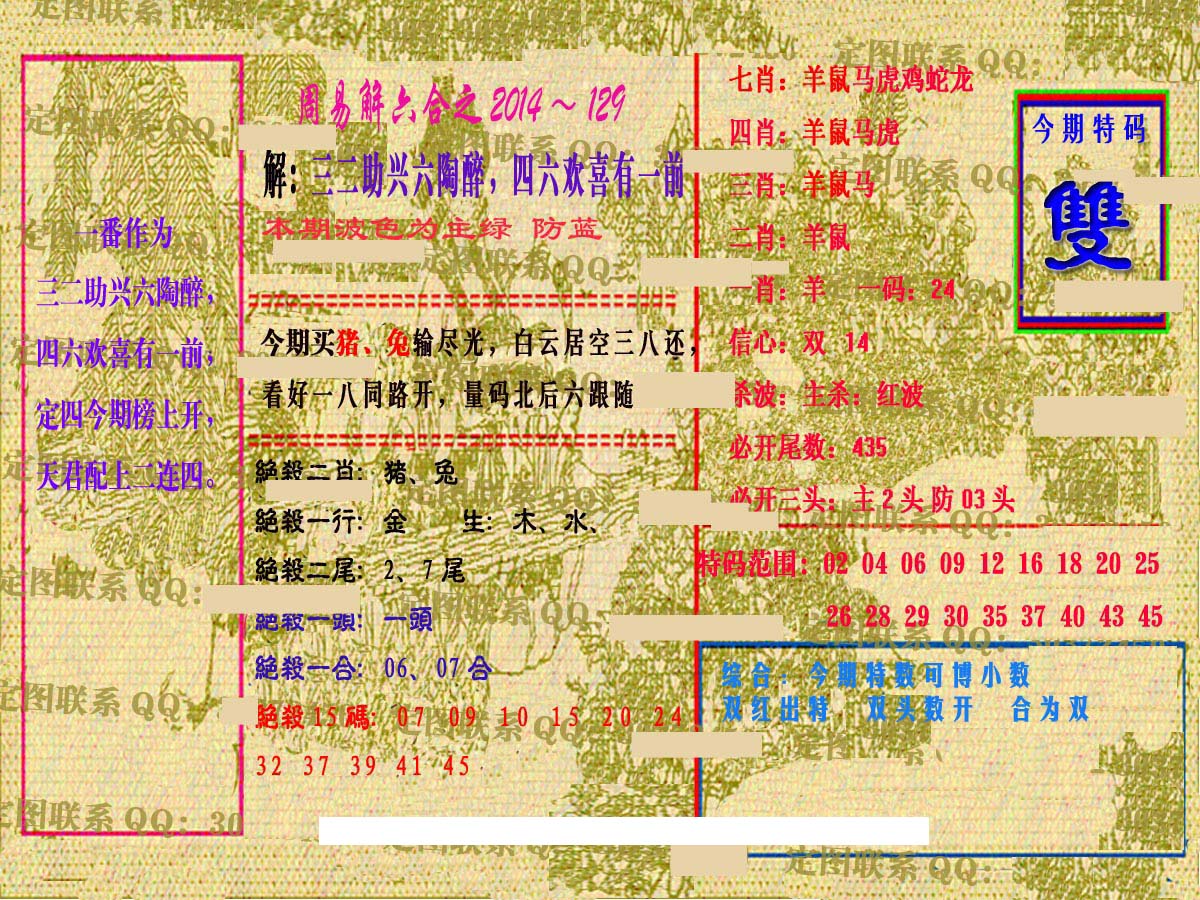 周易解六合之2014～129
解：三二助兴六陶醉，四六欢喜有一前
本期波色为主绿 防蓝
一番作为
三二助兴六陶醉，
四六欢喜有一前，
定四今期榜上开，
天君配上二连四。
今期买猪、兔输尽光，白云居空三八还，
看好一八同路开，量码北后六跟随
絕殺二肖：猪、兔
絕殺一行：金 生：木、水、
絕殺二尾：2、7尾
絕殺一頭：一頭
絕殺一合：06、07合
絕殺15碼：07 09 10 15 20 24
32 37 39 41 45
七肖：羊鼠马虎鸡蛇龙
四肖：羊鼠马虎
三肖：羊鼠马
二肖：羊鼠
一肖：羊 一码：24
信心：双 14
杀波：主杀：红波
必开尾数：435
必开三头：主2头防03头
今期特码
雙
特码范围：02 04 06 09 12 16 18 20 25
26 28 29 30 35 37 40 43 45
综合：今期特数可博小数
双红出特 双头数开 合为双
定图联系QQ：